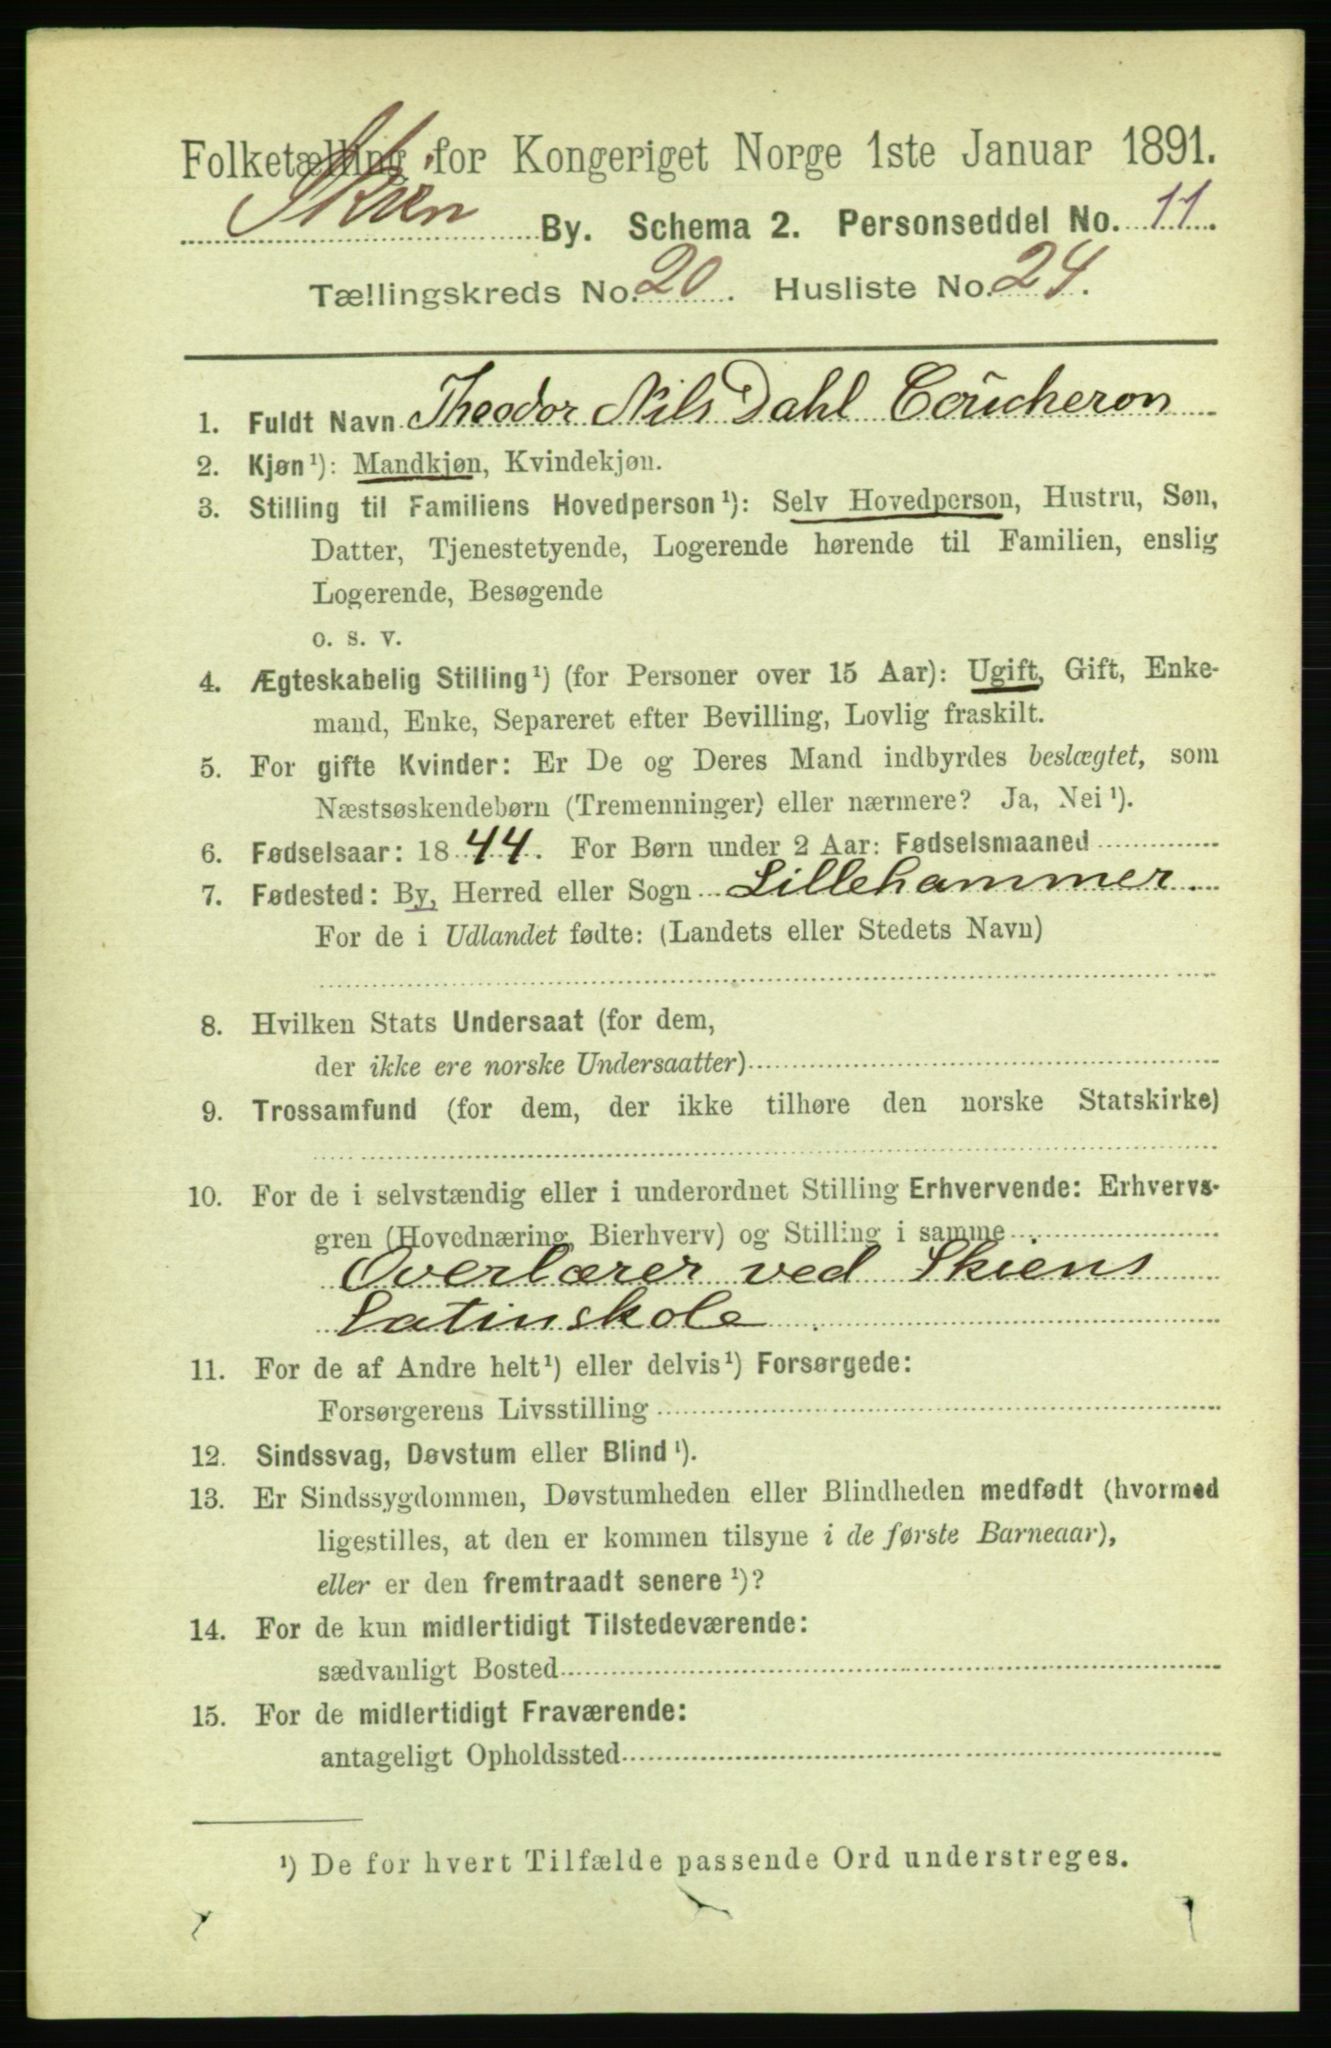 Folketælling for Kongeriget Norge 1ste Januar 1891.
Skien By. Schema 2. Personseddel No. 11.
Tællingskreds No. 20. Husliste No. 24.
1. Fuldt Navn Theodor Nils Dahl Coucheron
2. Kjøn¹): Mandkjøn, Kvindekjøn.
3. Stilling til Familiens Hovedperson¹): Selv Hovedperson, Hustru, Søn,
Datter, Tjenestetyende, Logerende hørende til Familien, enslig
Logerende, Besøgende
o. s. v.
4. Ægteskabelig Stilling¹) (for Personer over 15 Aar): Ugift, Gift, Enke-
mand, Enke, Separeret efter Bevilling, Lovlig fraskilt.
5. For gifte Kvinder: Er De og Deres Mand indbyrdes beslægtet, som
Næstsøskendebørn (Tremenninger) eller nærmere? Ja, Nei¹).
6. Fødselsaar: 1844. For Børn under 2 Aar: Fødselsmaaned
7. Fødested: By, Herred eller Sogn Lillehammer.
For de i Udlandet fødte: (Landets eller Stedets Navn)
8. Hvilken Stats Undersaat (for dem,
der ikke ere norske Undersaatter)
9. Trossamfund (for dem, der ikke tilhøre den norske Statskirke)
10. For de i selvstændig eller i underordnet Stilling Erhvervende: Erhvervs-
gren (Hovednæring, Bierhverv) og Stilling i samme
Overlærer ved Skiens
Latinskole
11. For de af Andre helt¹) eller delvis¹) Forsørgede:
Forsørgerens Livsstilling
12. Sindssvag, Døvstum eller Blind¹).
13. Er Sindssygdommen, Døvstumheden eller Blindheden medfødt (hvormed
ligestilles, at den er kommen tilsyne i de første Barneaar),
eller er den fremtraadt senere¹)?
14. For de kun midlertidigt Tilstedeværende:
sædvanligt Bosted
15. For de midlertidigt Fraværende:
antageligt Opholdssted
¹) De for hvert Tilfælde passende Ord understreges.